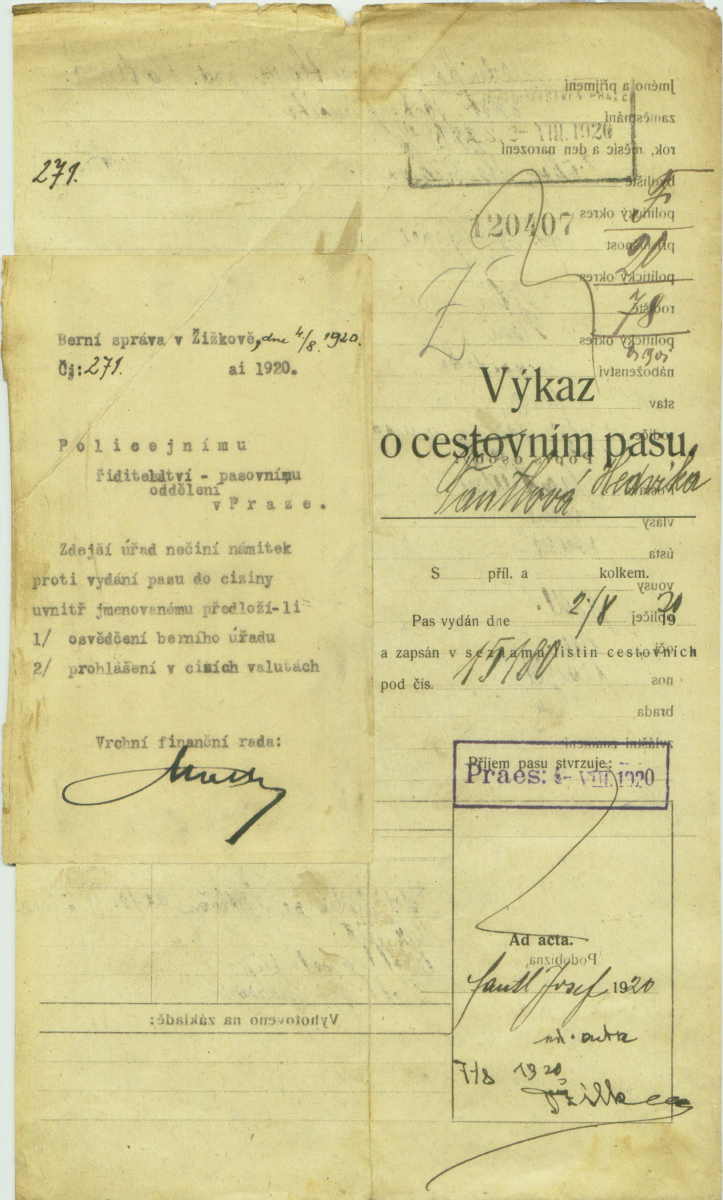 271.
Berní správa v Žižkově, dne 4/8. 1920.
Čj: 271. ai 1920.
Policejnímu
řiditelství - pasovnímu
oddělení
v Praze.
Zdejší úřad nečiní námitek
proti vydání pasu do ciziny
uvnitř jmenovanému předloží-li
1/ osvědčení berního úřadu
2/ prohlášení v cizích valutách
Vrchní finanční rada:
VIII. 1920
120407
20
78
Výkaz
o cestovním pasu
Hedvika
S příl. a kolkem.
Pas vydán dne 2/8 1920
a zapsán v seznamu listin cestovních
pod čís. 15180
Příjem pasu stvrzuje:
Praes: VIII. 1920
Ad acta.
Josef 1920
ad. acta
7/8 1920
Jméno a příjmení
zaměstnání
rok, měsíc a den narození
bydliště
politický okres
příslušnost
politický okres
rodiště
politický okres
náboženství
stav
vlasy
ústa
vousy
nos
brada
zvláštní znamení
Podobizna
Vyhotoveno na základě: